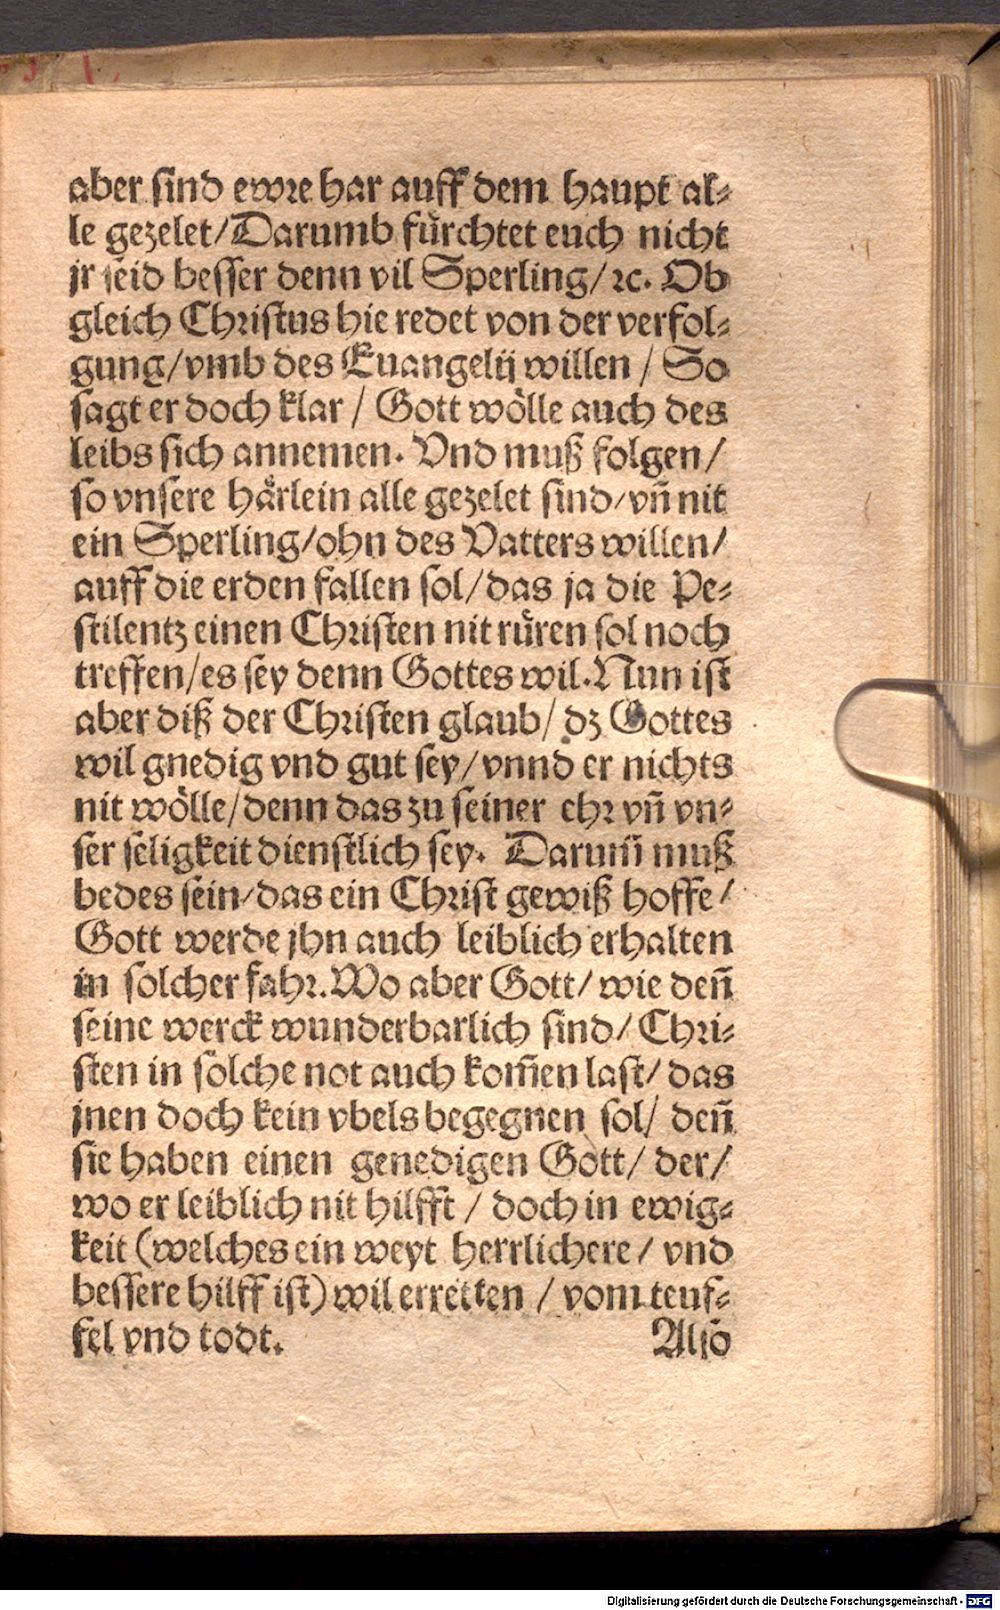 aber sind ewre har auff dem haupt al⸗
le gezelet/Darumb fürchtet euch nicht
jr seid besser denn vil Sperling/ ꝛc. Ob
gleich Christus hie redet von der verfol⸗
gung/vmb des Euangelij willen / So
sagt er doch klar / Gott wölle auch des
leibs sich annemen. Vnd muß folgen/
so vnsere härlein alle gezelet sind/vn̄ nit
ein Sperling/ohn des Vatters willen/
auff die erden fallen sol/das ja die Pe⸗
stilentz einen Christen nit rüren sol noch
treffen/es sey denn Gottes wil. Nun ist
aber diß der Christen glaub/ dz Gottes
wil gnedig vnd gut sey/vnnd er nichts
nit wölle/denn das zu seiner ehr vn̄ vn⸗
ser seligkeit dienstlich sey. Darum̄ muß
bedes sein/das ein Christ gewiß hoffe/
Gott werde jhn auch leiblich erhalten
in solcher fahr. Wo aber Gott/ wie den̄
seine werck wunderbarlich sind/ Chri⸗
sten in solche not auch kom̄en last/ das
jnen doch kein vbels begegnen sol/ den̄
sie haben einen genedigen Gott/ der/
wo er leiblich nit hilfft / doch in ewig⸗
keit (welches ein weyt herrlichere / vnd
bessere hilff ist) wil erretten / vom teuf⸗
fel vnd todt. Also
Digitalisierung gefördert durch die Deutsche Forschungsgemeinschaft - DFG